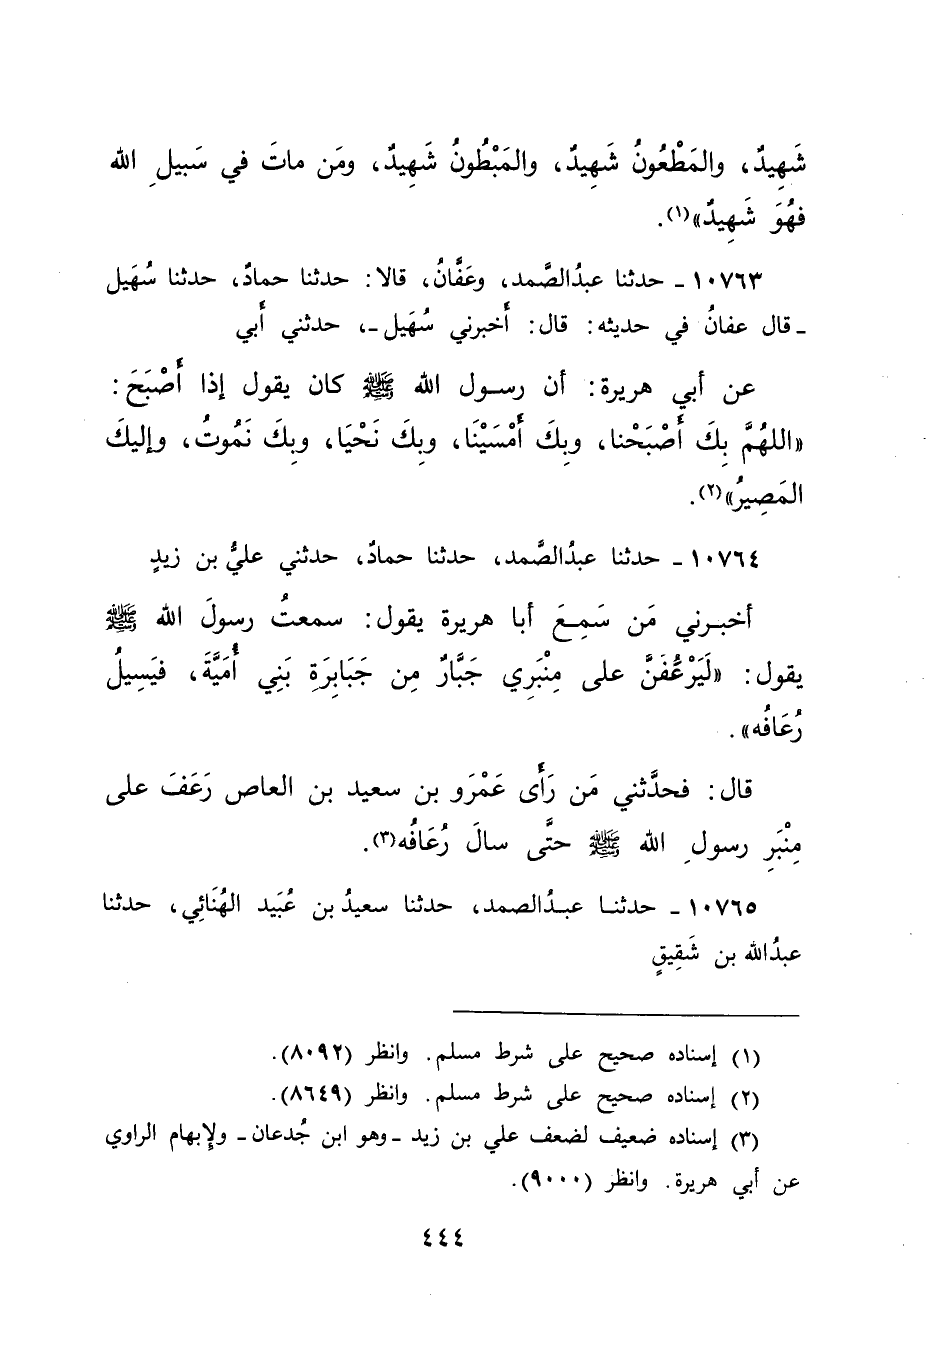 شَهِيدٌ، والمَطْعُونُ شَهِيدٌ، والمَبْطُونُ شَهِيدٌ، ومَن ماتَ في سَبيلِ الله
فهُوَ شَهِيدٌ»(١).
١٠٧٦٣ ـ حدثنا عبدُالصَّمد، وعَفَّانُ، قالا: حدثنا حمادٌ، حدثنا سُهَيل
ـ قال عفانُ في حديثه: قال: أَخبرني سُهَيل ـ، حدثني أَبي
عن أبي هريرة: أن رسول الله ﷺ كان يقول إذا أَصْبَحَ:
«اللهُمَّ بِكَ أَصْبَحْنا، وبِكَ أَمْسَيْنَا، وبِكَ نَحْيَا، وبِكَ نَمُوتُ، وإليكَ
المَصِيرُ»(٢).
١٠٧٦٤ ـ حدثنا عبدُالصَّمد، حدثنا حمادٌ، حدثني عليُّ بن زيدٍ
أخبرني مَن سَمِعَ أبا هريرة يقول: سمعتُ رسولَ الله ﷺ
يقول: «لَيَرْعُفَنَّ على مِنْبَرِي جَبَّارٌ مِن جَبَابَرَةِ بَنِي أُمَيَّةَ، فيَسِيلُ
رُعَافُه».
قال: فحدَّثني مَن رَأَى عَمْرَو بن سعيد بن العاص رَعَفَ على
مِنْبَرِ رسولِ الله ﷺ حتَّى سالَ رُعَافُه(٣).
١٠٧٦٥ ـ حدثنا عبدُالصمد، حدثنا سعيدُ بن عُبَيد الهُنَائِي، حدثنا
عبدُالله بن شَقِيقٍ
(١) إسناده صحيح على شرط مسلم. وانظر (٨٠٩٢).
(٢) إسناده صحيح على شرط مسلم. وانظر (٨٦٤٩).
(٣) إسناده ضعيف لضعف علي بن زيد ـ وهو ابن جُدعان ـ ولإبهام الراوي
عن أبي هريرة. وانظر (٩٠٠٠).
٤٤٤